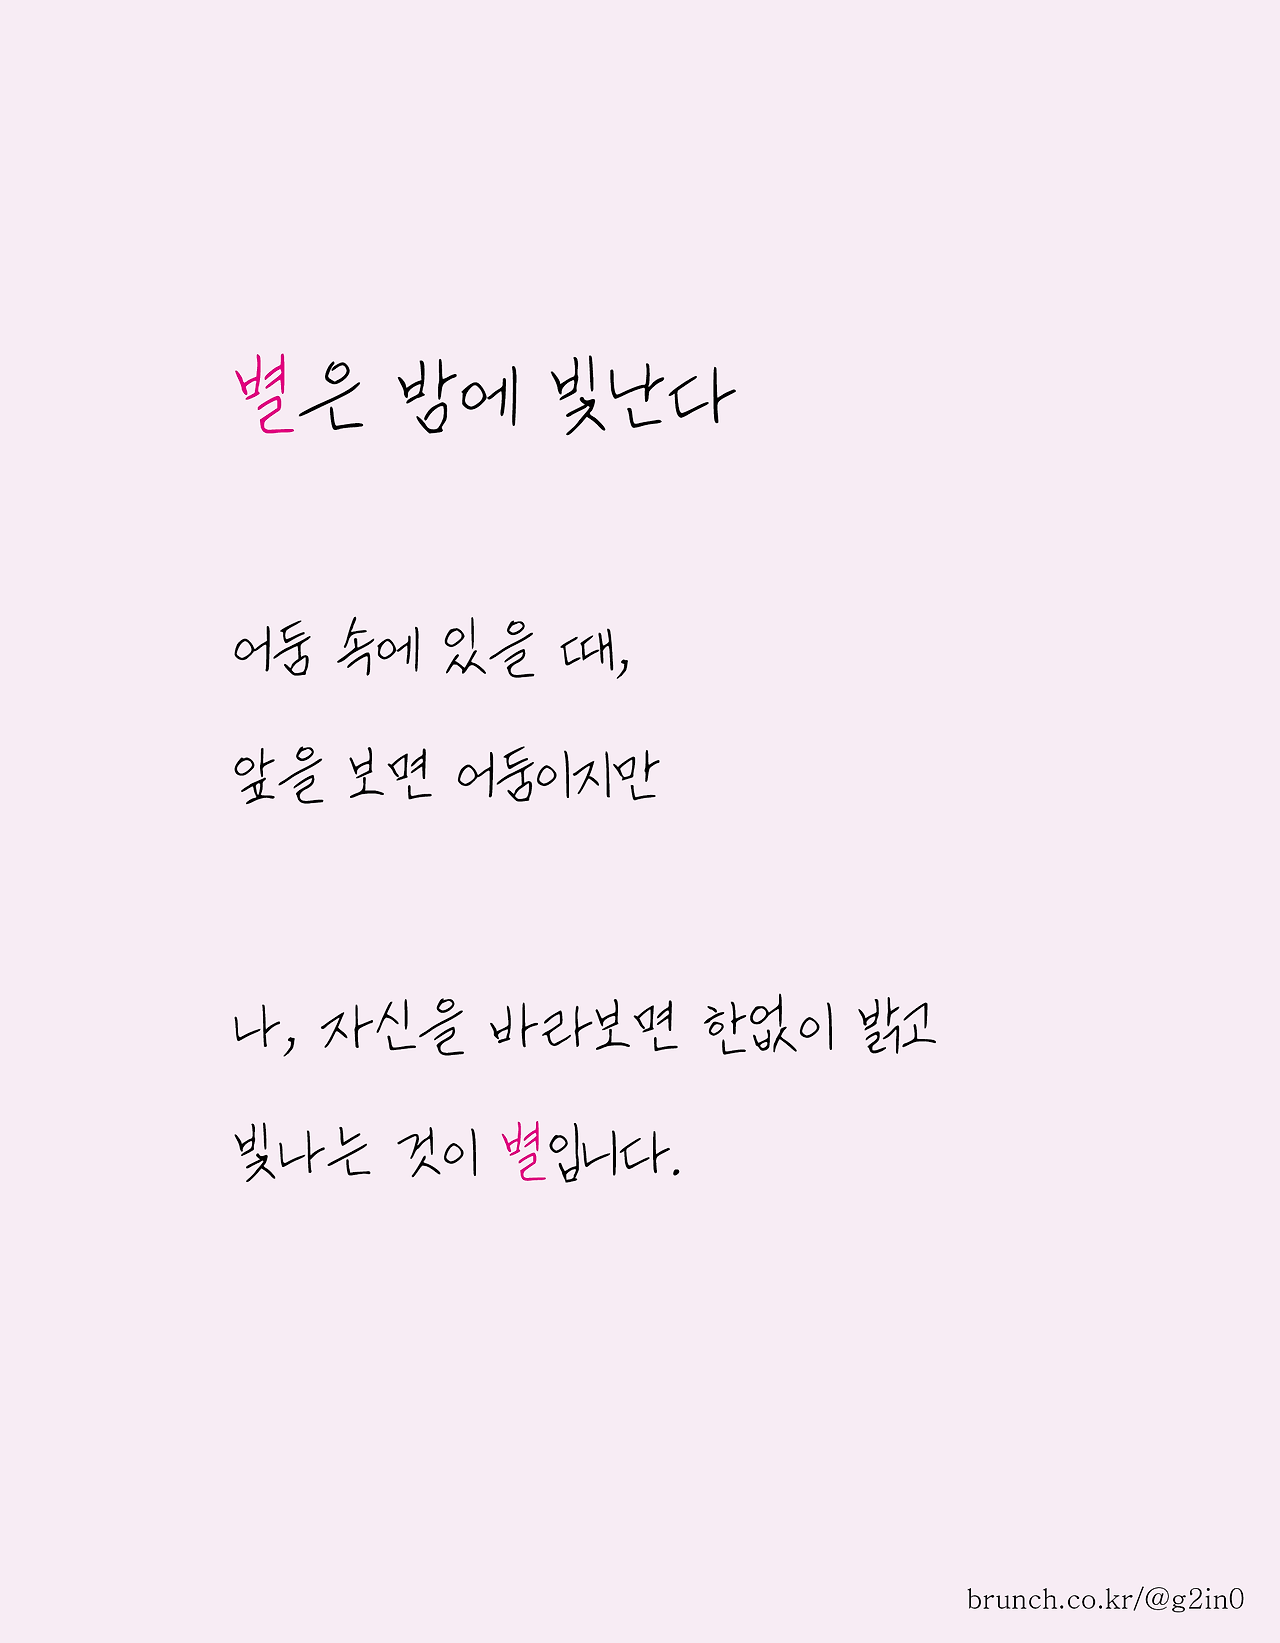 별은 밤에 빛난다
어둠 속에 있을 때,
앞을 보면 어둠이지만
나, 자신을 바라보면 한없이 밝고
빛나는 것이 별입니다.
brunch.co.kr/@g2in0